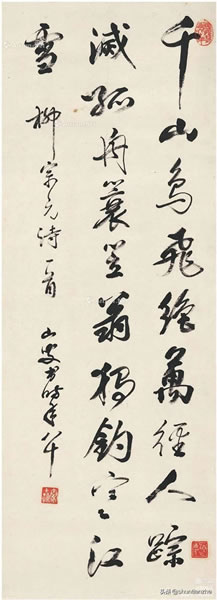 千山鳥飛絶萬徑人踪
滅孤舟蓑笠翁獨釣寒江
雪 柳宗元詩一首 書時年八十
头条 @shuntianzhe